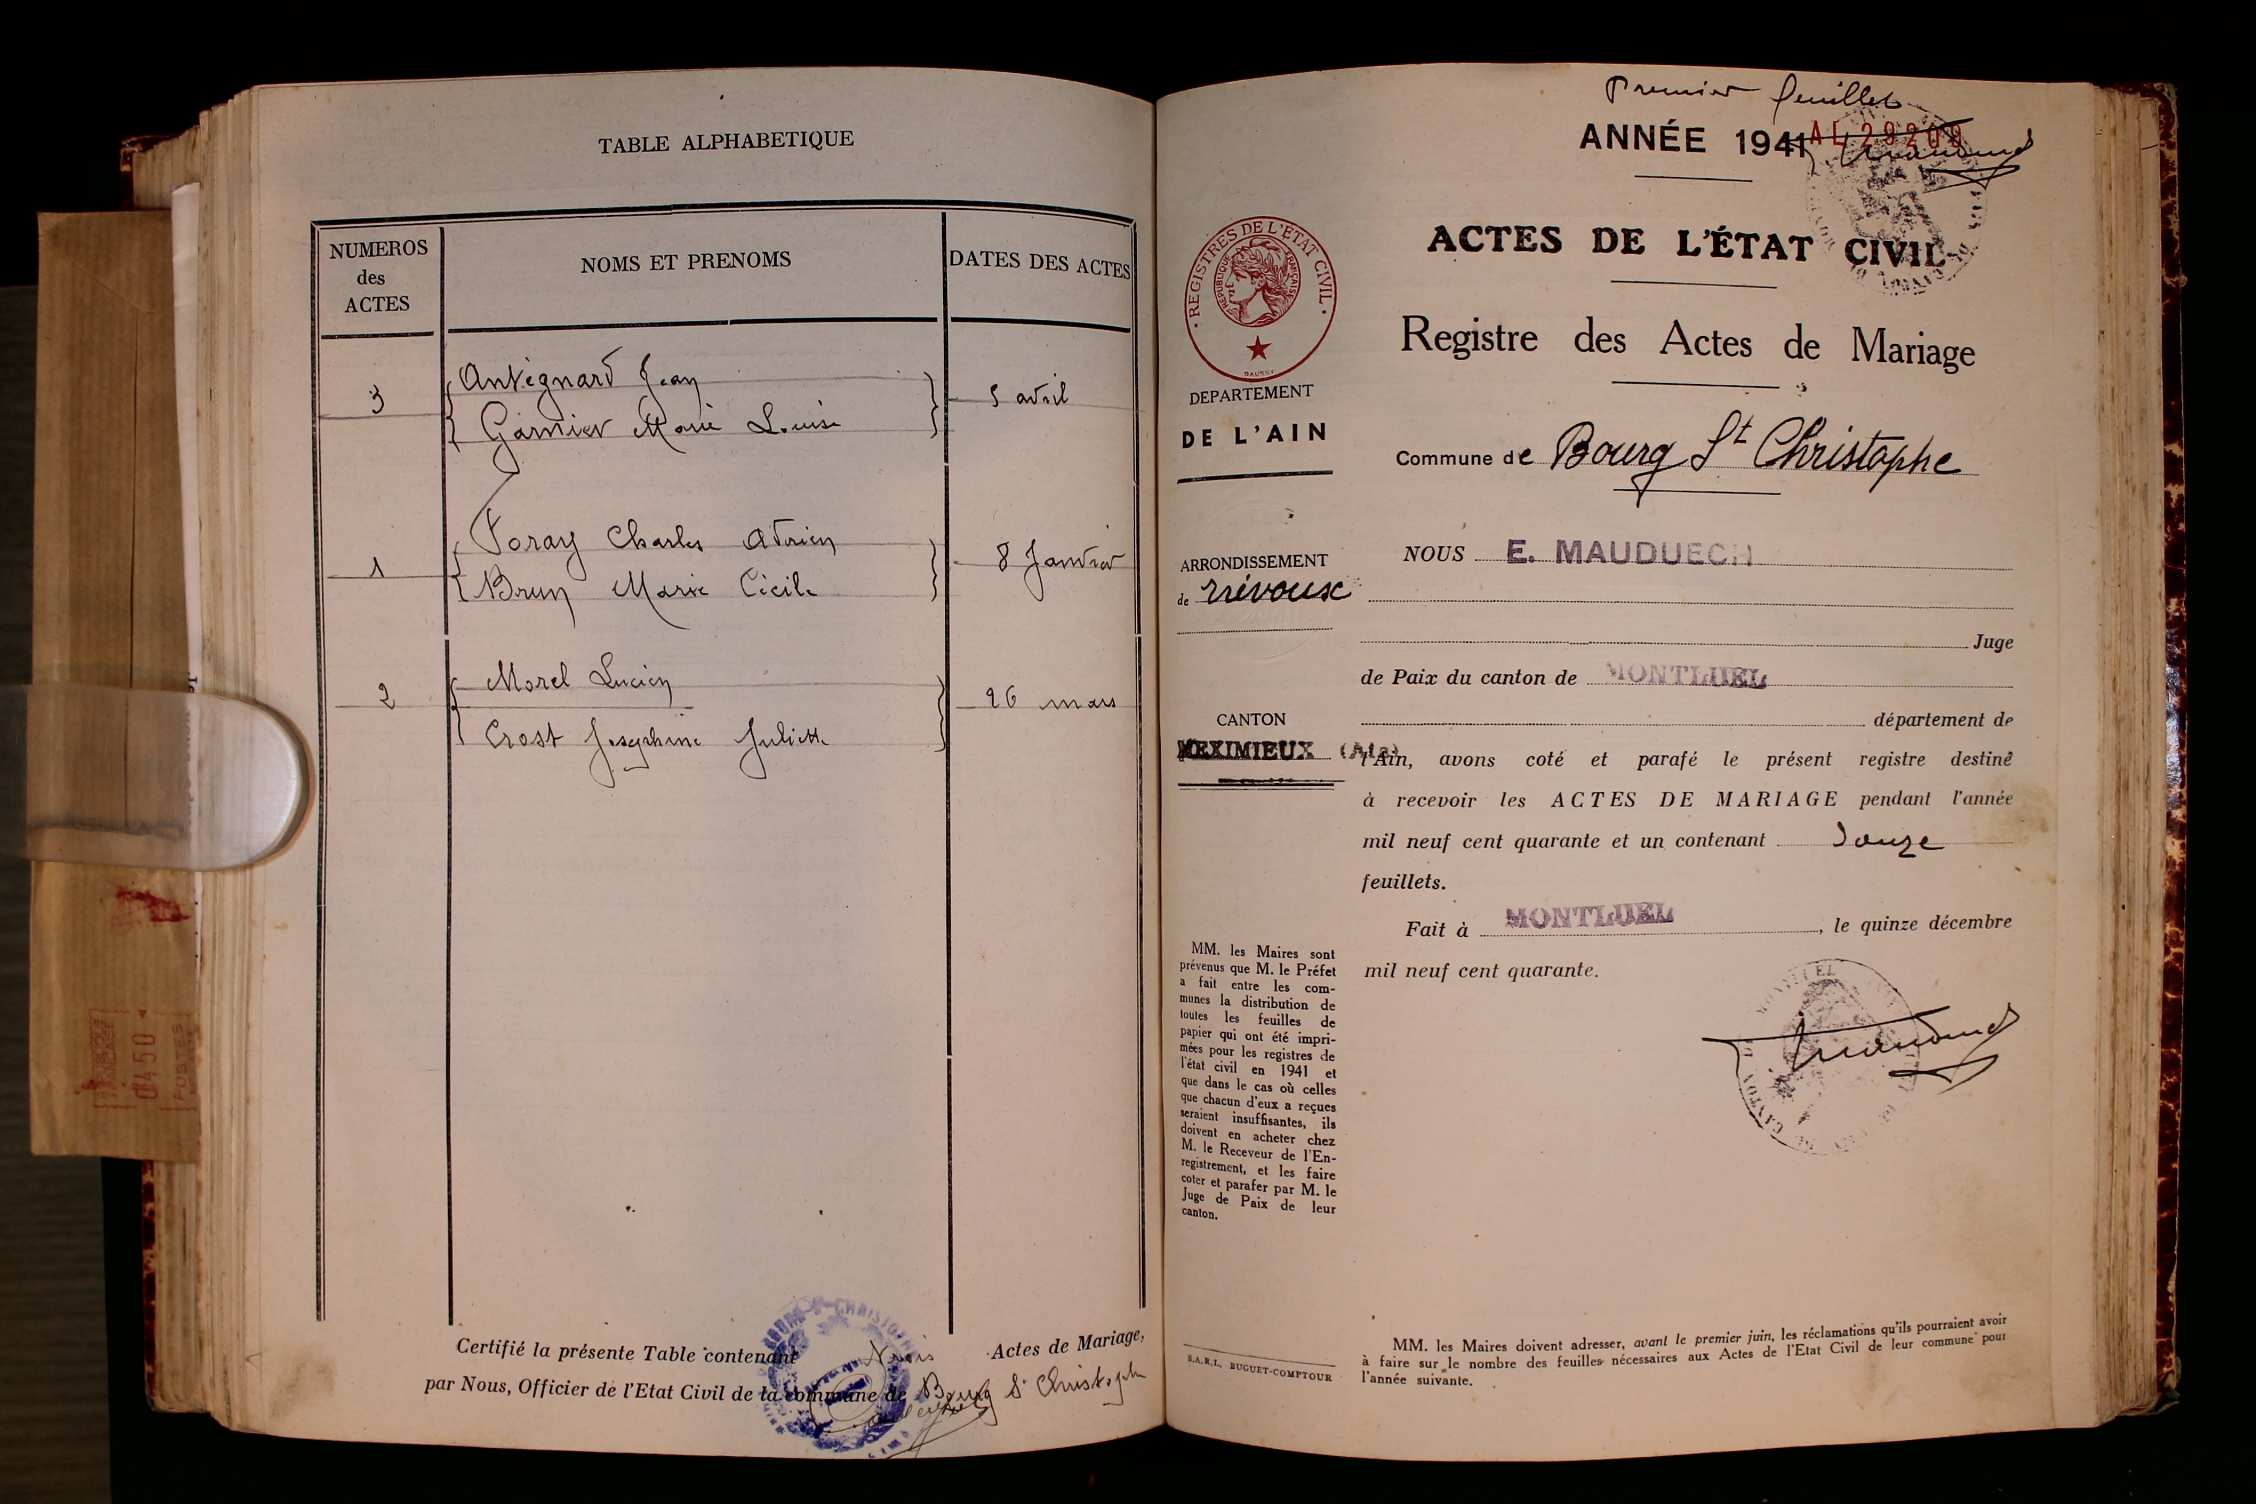 TABLE ALPHABETIQUE
NUMEROS
des
ACTES
NOMS ET PRENOMS
DATES DES ACTES
3
Antignard Jean
Garnier Marie Louise
5 avril
1
Foray Charles Adrien
Brun Marie Cécile
8 Janvier
2
Morel Lucien
Crost Josephine Juliette
26 mars
Certifié la présente Table contenant trois Actes de Mariage,
par Nous, Officier de l'Etat Civil de la commune de Bourg St Christophe
Premier feuillet
ANNÉE 1941
AL 29209
ACTES DE L'ÉTAT CIVIL
Registre des Actes de Mariage
Commune de Bourg St Christophe
· REGISTRES DE L'ETAT CIVIL ·
REPUBLIQUE FRANÇAISE
DEPARTEMENT
DE L'AIN
ARRONDISSEMENT
de Trévoux
CANTON
MEXIMIEUX (Ain)
MM. les Maires sont
prévenus que M. le Préfet
a fait entre les com-
munes la distribution de
toutes les feuilles de
papier qui ont été impri-
mées pour les registres de
l'état civil en 1941 et
que dans le cas où celles
que chacun d'eux a reçues
seraient insuffisantes, ils
doivent en acheter chez
M. le Receveur de l'En-
registrement, et les faire
coter et parafer par M. le
Juge de Paix de leur
canton.
S.A.R.L. BUGUET-COMPTOUR
NOUS E. MAUDUECH
Juge
de Paix du canton de MONTLUEL
département de
l'Ain, avons coté et parafé le présent registre destiné
à recevoir les ACTES DE MARIAGE pendant l'année
mil neuf cent quarante et un contenant douze
feuillets.
Fait à MONTLUEL, le quinze décembre
mil neuf cent quarante.
MM. les Maires doivent adresser, avant le premier juin, les réclamations qu'ils pourraient avoir
à faire sur le nombre des feuilles nécessaires aux Actes de l'Etat Civil de leur commune pour
l'année suivante.
0450
POSTES